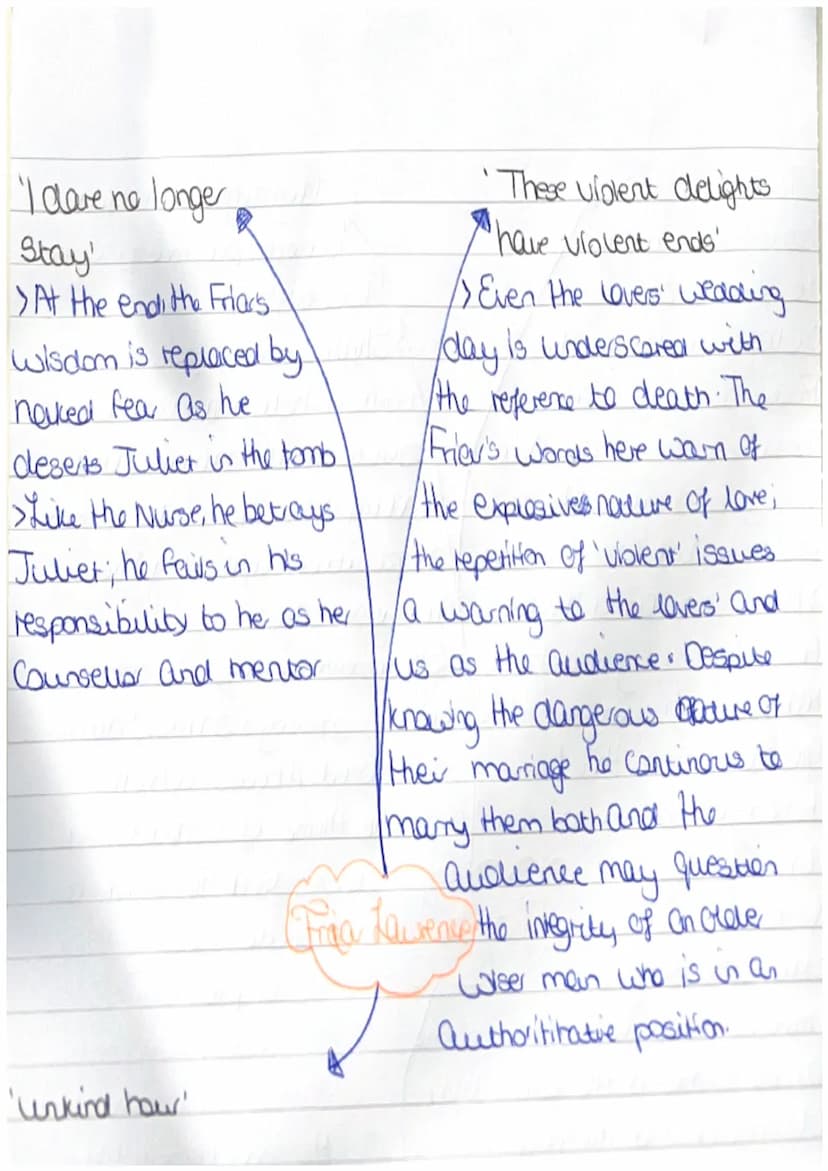 'I dare no longer
Stay'
>At the end, the Friars
wisdom is replaced by
naked fear as he
deserts Juliet in the tomb
>Like the Nurse, he betrays
Juliet; he fails in his
responsibility to he as her
Counsellor and mentor
'These violent delights
have violent ends'
>Even the lovers' wedding
day is underscored with
the reference to death. The
Friar's words here warn of
the explosives nature of love;
the repetition of 'violent' issues
a warning to the lovers' and
us as the audience. Despite
knowing the dangerous nature of
their marriage he continous to
marry them both and the
audience may question
the integrity of an older
wiser man who is in an
authoritiative position.
Friar Lawrence
'unkind hour'